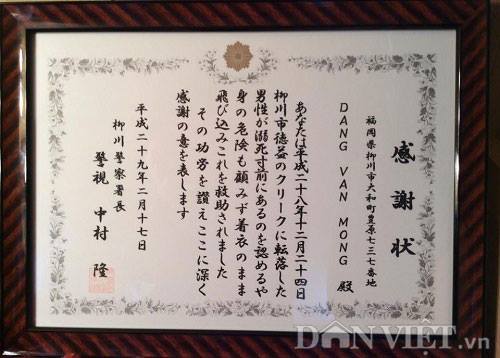 感謝状
福岡県柳川市大和町豊原七三七番地
DANG VAN MONG 殿
あなたは平成二十八年十二月二十四日
柳川市徳益のクリークに転落した
男性が溺死寸前にあるのを認めるや
身の危険も顧みず着衣のまま
飛び込みこれを救助されました
その功労を讃えここに深く
感謝の意を表します
平成二十九年二月十七日
柳川警察署長
警視 中村 隆
DÂN VIỆT.vn